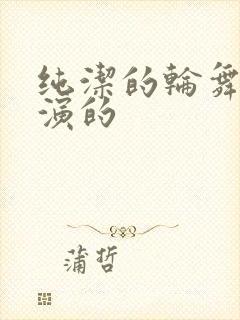 纯潔的輪舞
演的
蒲哲